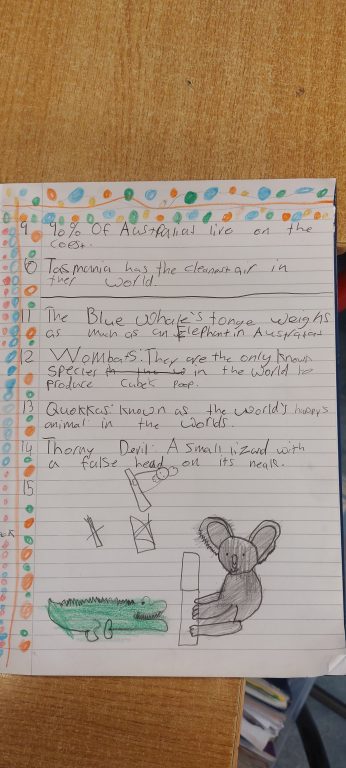 9 90% Of Australias live on the
coest.
10 Tasmania has the cleanest air in
ther world.
11 The Blue Whale's tonge weighs
as much as an Elephant in Australia
12 Wombats: They are the only known
species in the world to
produce Cubek poop.
13 Quokkas: known as the world's happys
animal in the worlds.
14 Thorny Devil: A small lizard with
a false head on its neak.
15